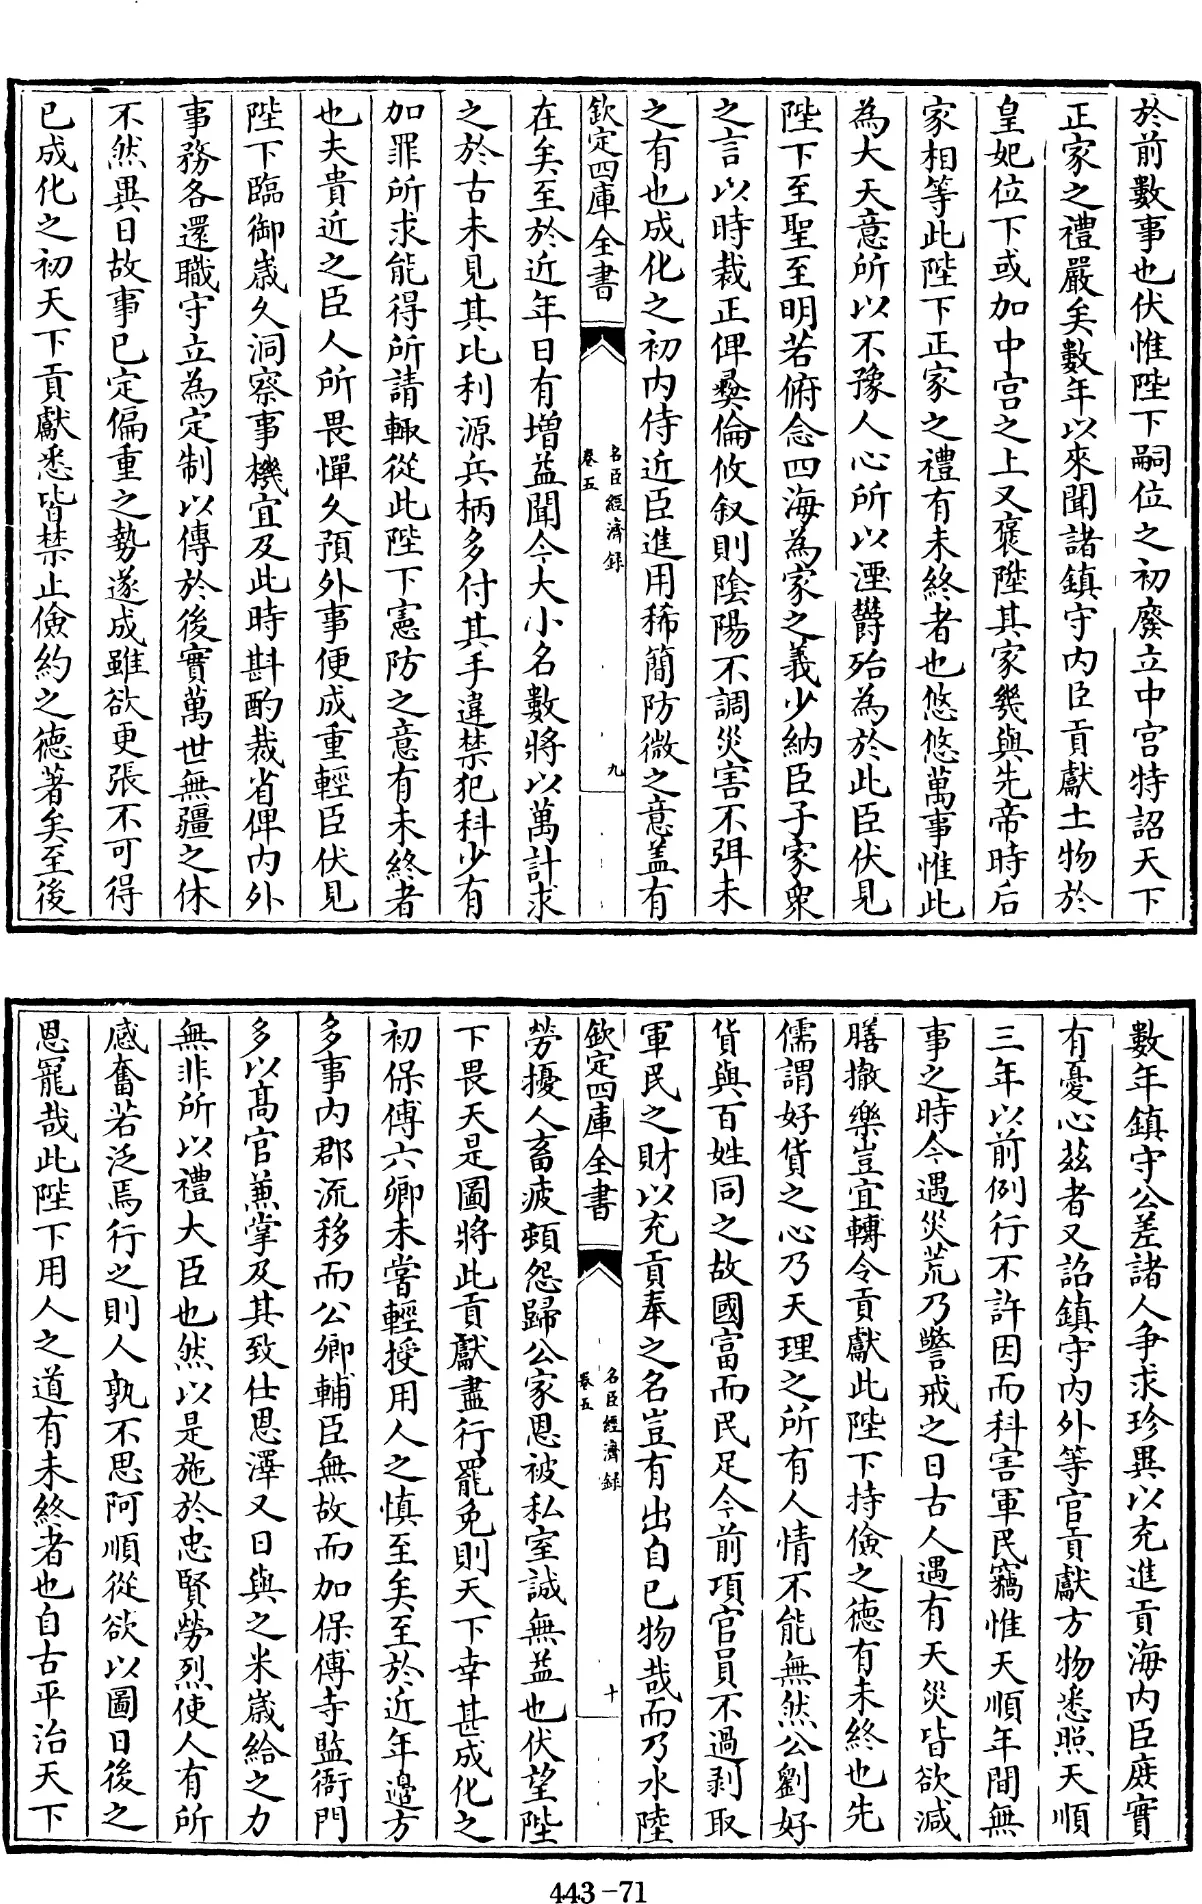 於前數事也伏惟陛下嗣位之初廢立中宮特詔天下
正家之禮嚴矣數年以來聞諸鎮守内臣貢獻土物於
皇妃位下或加中宮之上又褒陞其家幾與先帝時后
家相等此陛下正家之禮有未終者也悠悠萬事惟此
為大天意所以不豫人心所以湮欝殆為於此臣伏見
陛下至聖至明若俯念四海為家之義少納臣子家衆
之言以時裁正俾彜倫攸叙則隂陽不調災害不弭未
之有也成化之初内侍近臣進用稀簡防微之意盖有
欽定四庫全書
名臣經濟録
卷五
九
在矣至於近年日有增益聞今大小名數將以萬計求
之於古未見其比利源兵柄多付其手違禁犯科少有
加罪所求能得所請輙從此陛下憲防之意有未終者
也夫貴近之臣人所畏憚久預外事便成重輕臣伏見
陛下臨御嵗久洞察事機宜及此時斟酌裁省俾内外
事務各還職守立為定制以傳於後實萬世無疆之休
不然異日故事已定偏重之勢遂成雖欲更張不可得
已成化之初天下貢獻悉皆禁止儉約之徳著矣至後
數年鎮守公差諸人爭求珍異以充進貢海内臣庶實
有憂心兹者又詔鎮守内外等官貢獻方物悉照天順
三年以前例行不許因而科害軍民竊惟天順年間無
事之時今遇災荒乃警戒之日古人遇有天災皆欲減
膳撤樂豈宜轉令貢獻此陛下持儉之徳有未終也先
儒謂好貨之心乃天理之所有人情不能無然公劉好
貨與百姓同之故國富而民足今前項官員不過剥取
軍民之財以充貢奉之名豈有出自已物哉而乃水陸
欽定四庫全書
名臣經濟録
卷五
十
勞擾人畜疲頓怨歸公家恩被私室誠無益也伏望陛
下畏天是圖將此貢獻盡行罷免則天下幸甚成化之
初保傅六卿未嘗輕授用人之慎至矣至於近年邉方
多事内郡流移而公卿輔臣無故而加保傅寺監衙門
多以髙官兼掌及其致仕恩澤又日與之米嵗給之力
無非所以禮大臣也然以是施於忠賢勞烈使人有所
感奮若泛焉行之則人孰不思阿順從欲以圖日後之
恩寵哉此陛下用人之道有未終者也自古平治天下
443-71